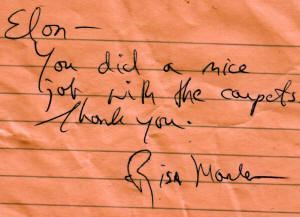 Elon—
You did a nice
job with the carpets.
Thank you.
Risa